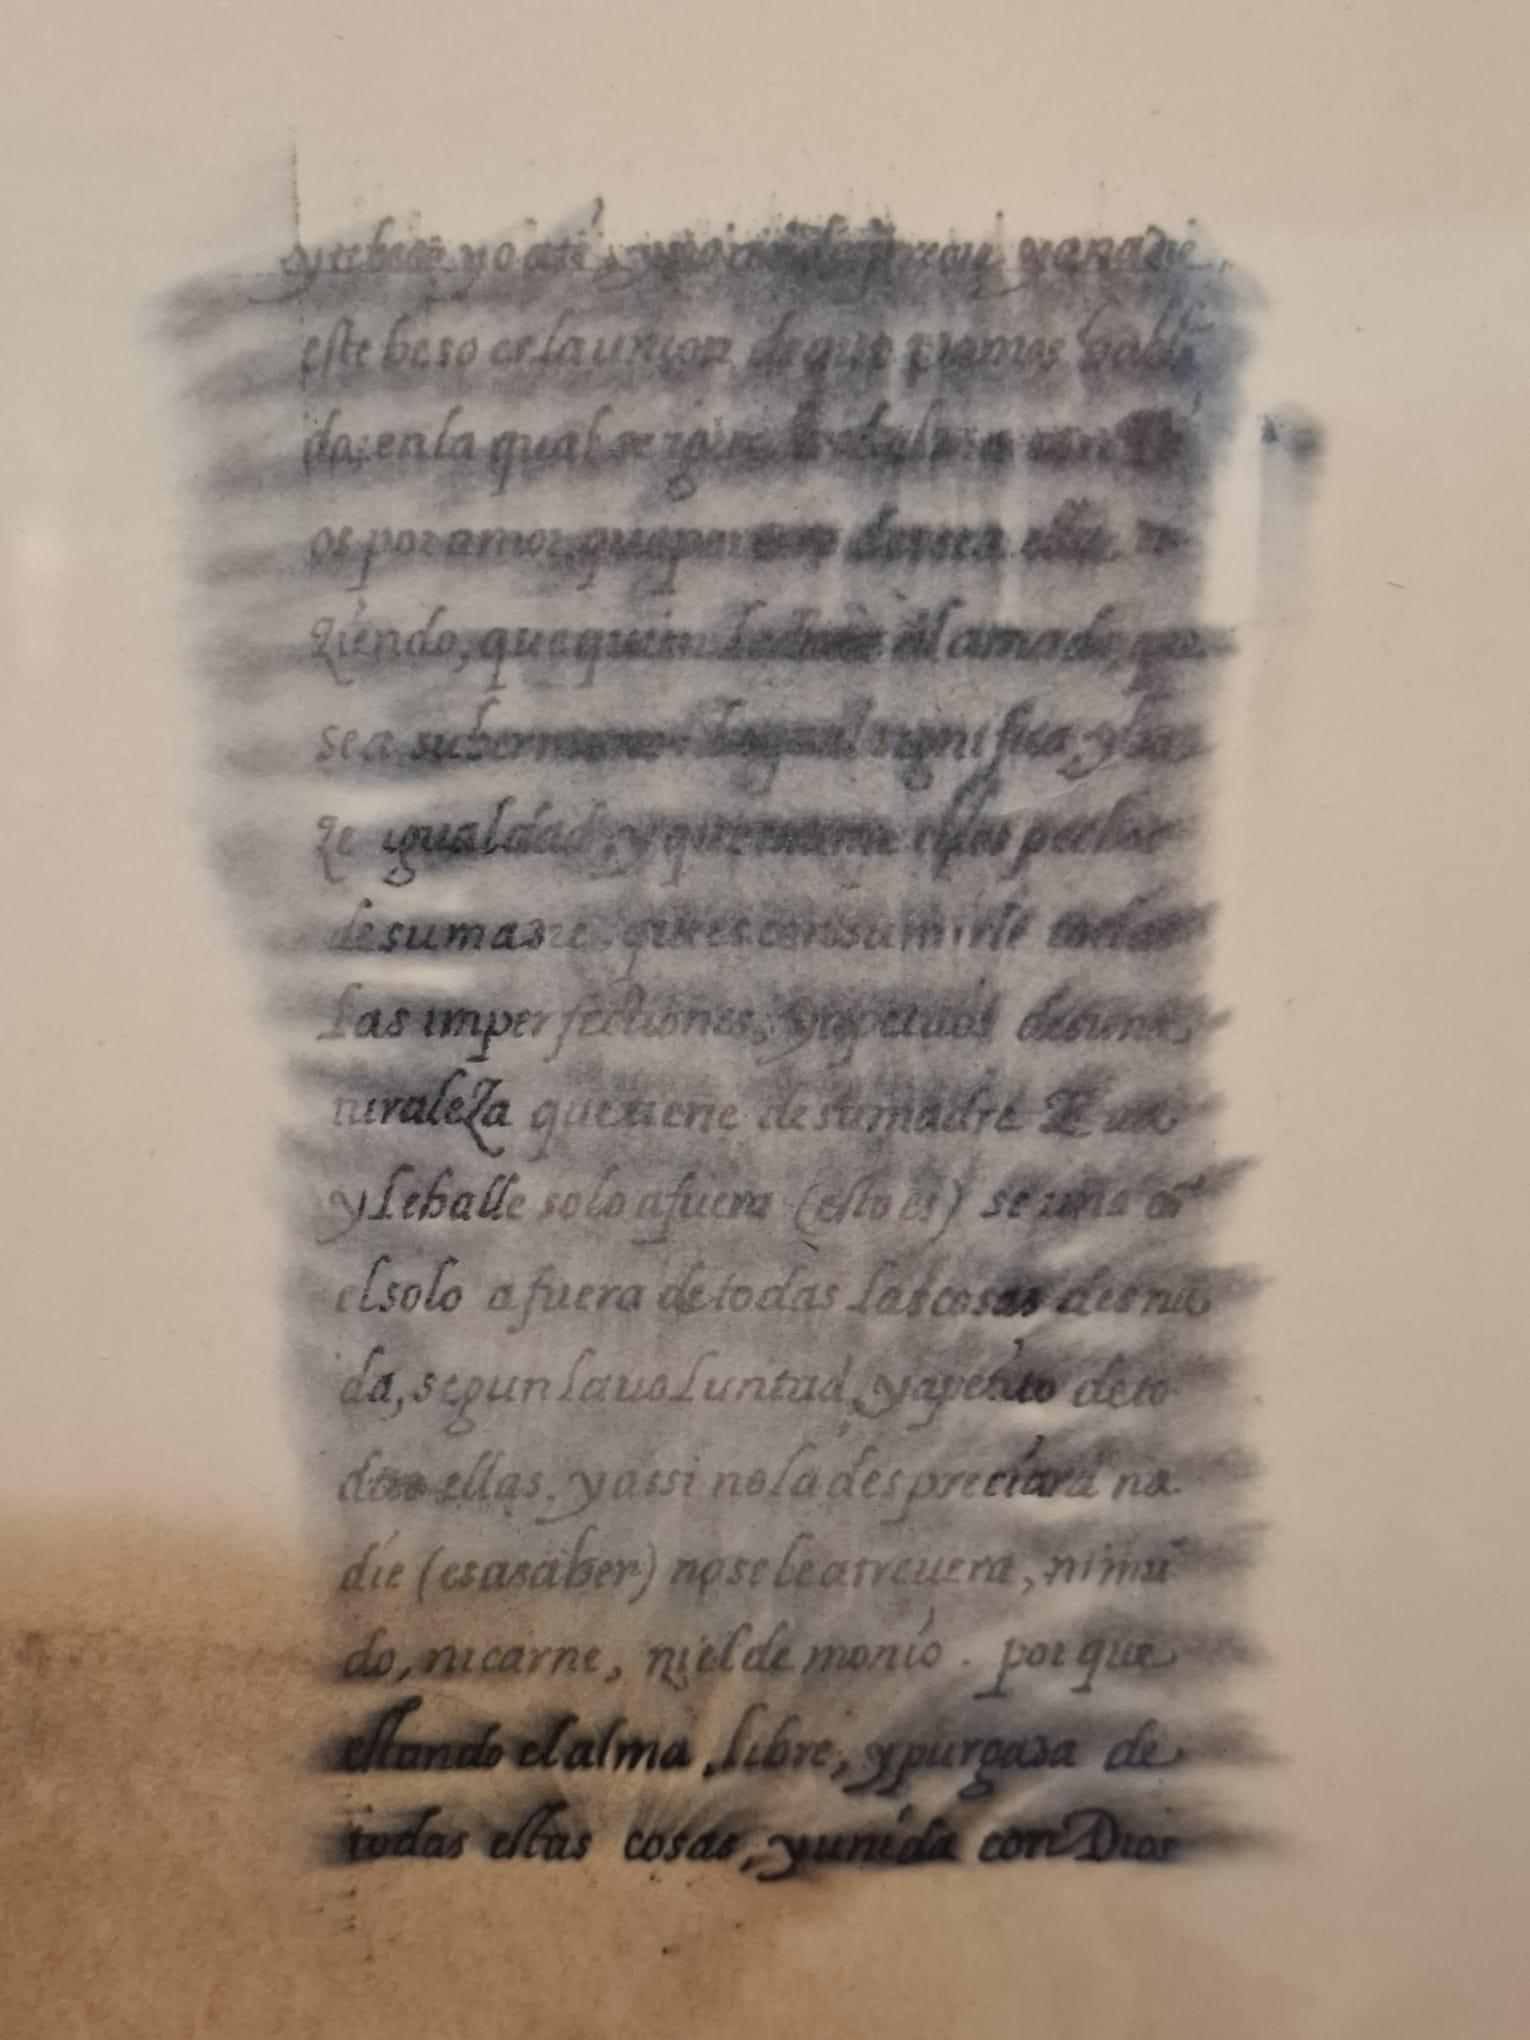 y te bese yo a ti, nadie,
este beso es la union de que vamos habla
do; en la qual se el alma con
os por amor, que por desea ella,
Ziendo, que quien el amado, que
sea su hermano lo qual significa, y ha
Ze igualdad, y que mame pechos
de su madre, que es consumirle todas
las imperfectiones, y apetitos de su na
turaleZa que tiene de su madre Eua
y le halle solo afuera (esto es) se una cō
el solo a fuera de todas las cosas desnu
da, segun la uoluntad, y apetito de to
das ellas, y assi no la despreciará na
die (es a saber) no se le atreuera, ni mū
do, ni carne, ni el demonio. porque
estando el alma, libre, y purgada de
todas estas cosas, y unida con Dios